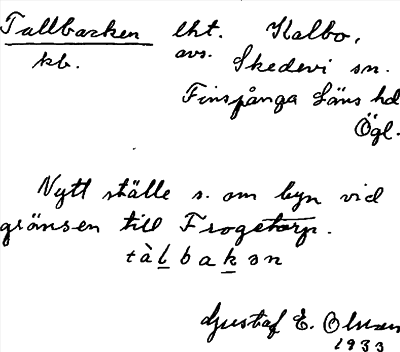 Tallbacken lht. Kalbo,
kb. avs. Skedevi sn.
Finspånga Läns hd
Ögl.
Nytt ställe s. om byn vid
gränsen till Frogetorp.
tàlbakən
Gustaf E. Olsson
1933